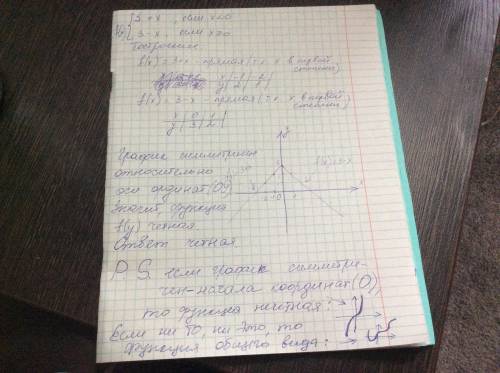 3+x, если x<0
3-x, если x≥0
Построим
f(x)=3+x - прямая (т.к. x в первой
степени)
x | -1 |
y | 2 |
f(x)=3-x - прямая (т.к. x в первой
степени)
x | 0 | 1 |
y | 3 | 2 |
y
График симметричен
относительно
оси ординат (Oy)
Значит, функция
f(y) чётная.
Ответ чётная
x
P. S. если график симметри-
чен-начала координат (O),
то функция нечётная:
Если ни то, ни это, то
функция общего вида: